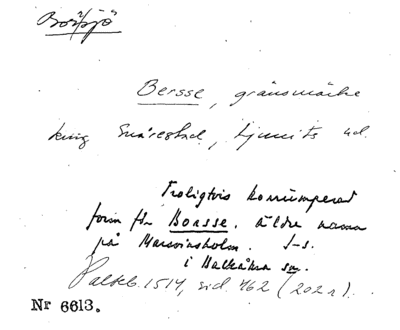 Borrsjö
Bersse, gränsmärke
kring Snårestad, Ljunits hd.
Troligtvis korrumperad
form för Borsse, äldre namn
på Marsvinsholm. I-s.
i Balkåkra sn.
1514, sid. 462 (202 r).
Nr 6613.